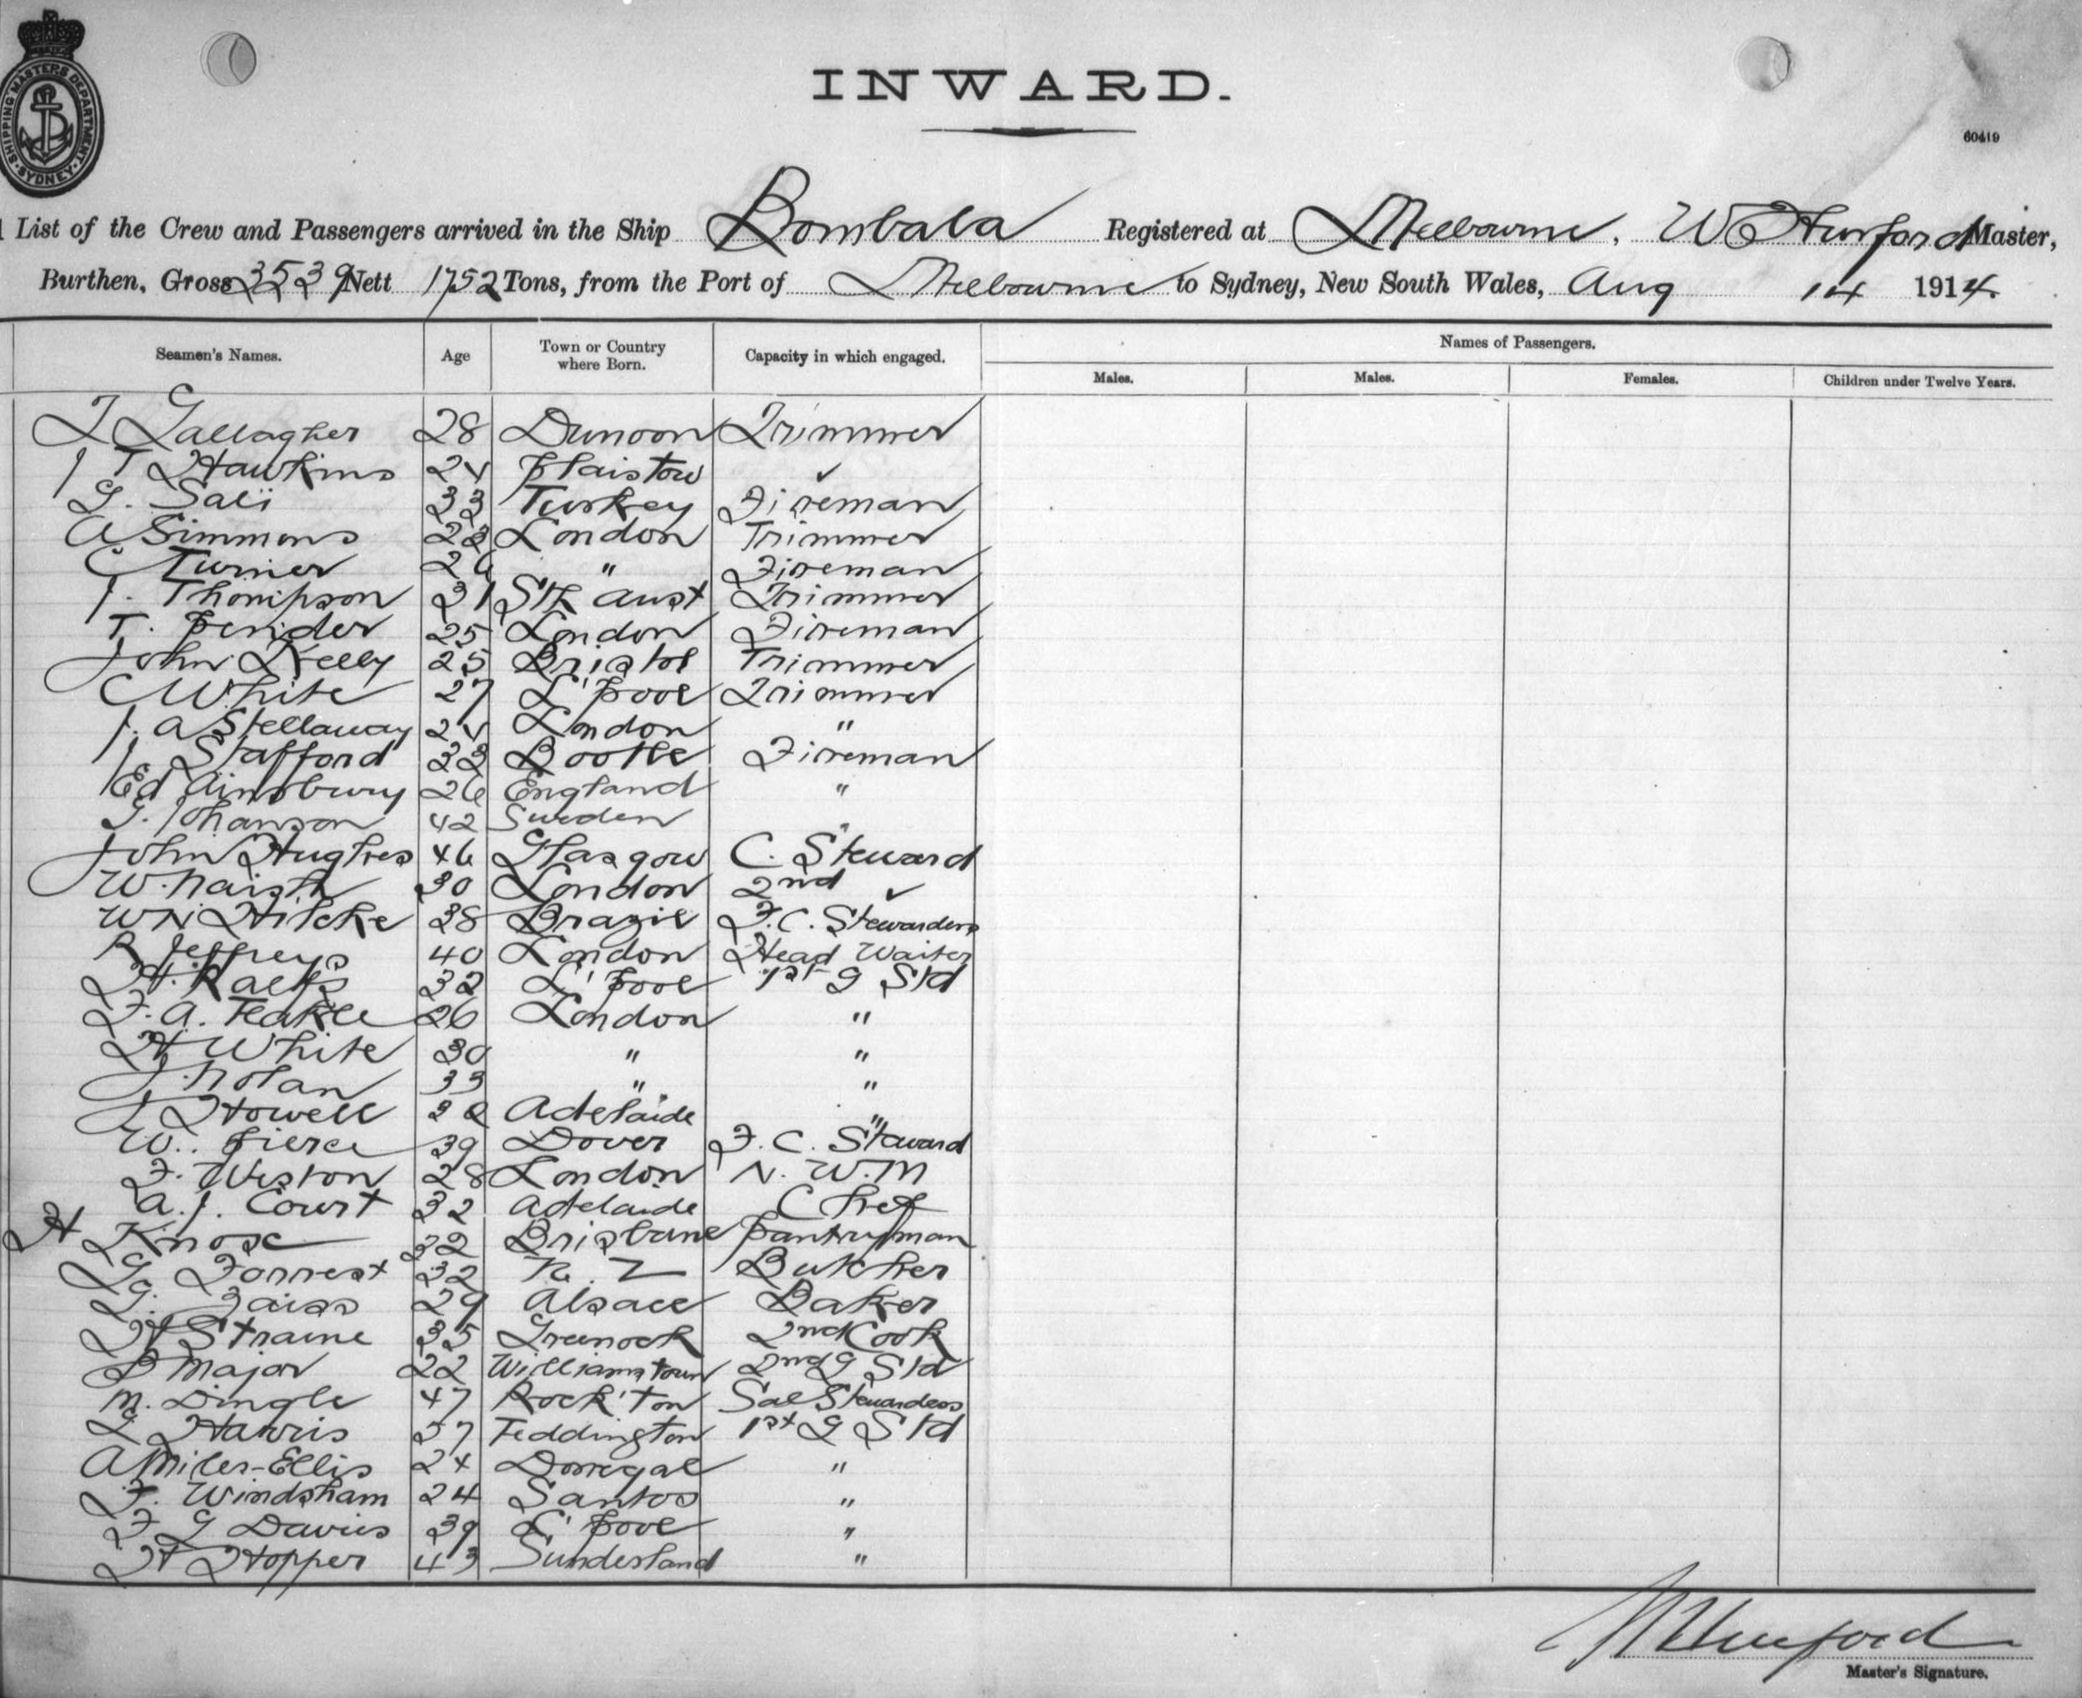 SHIPPING MASTERS DEPARTMENT SYDNEY
INWARD.
60419
List of the Crew and Passengers arrived in the Ship Bombala Registered at Melbourne, W Hurford Master,
Burthen, Gross 3539 Nett 1752 Tons, from the Port of Melbourne to Sydney, New South Wales, Aug 14 1914.
Seamen's Names. Age Town or Country where Born. Capacity in which engaged. Names of Passengers.
Males. Males. Females. Children under Twelve Years.
T Gallagher 28 Dunoon Trimmer
J T Hawkins 24 Plaistow ✓
G. Sali 33 Turkey Fireman
A Simmons 23 London Trimmer
C Turner 26 " Fireman
J. Thompson 31 Sth Aust Trimmer
T. Pender 25 London Fireman
John Kelly 25 Bristol Trimmer
C White 27 L'pool Trimmer
J. A Stellaway 24 London "
J Stafford 33 Bootle Fireman
Ed Ainsbury 26 England "
G. Johanson 42 Sweden "
John Hughes 46 Glasgow C. Steward
W. Naish 30 London 2nd ✓
W N Hitchke 38 Brazil F.C. Stewardess
R Jeffreys 40 London Head Waiter
H. Ralfs 32 L'pool 1st G Std
F. A. Teakle 26 London "
H White 30 " "
J. Nolan 33 " "
J Howell Adelaide "
W. Pierce 39 Dover F. C. Steward
F. Weston 28 London N. W. M
A. J. Court 32 Adelaide Chef
H Knose 32 Brisbane Pantryman
G. Forrest 32 N. Z Butcher
G. Zaiss 29 Alsace Baker
H Straine 35 Greenock 2nd Cook
B Major 22 Williamstown 2nd G Std
M. Dingle 47 Rock'ton Sal Stewardess
G Harris 37 Teddington 1st G Std
A Miles-Ellis 24 Donegal "
F. Windsham 24 Santos "
F G Davies 39 L'pool "
H Hopper 43 Sunderland "
W Hurford
Master's Signature.